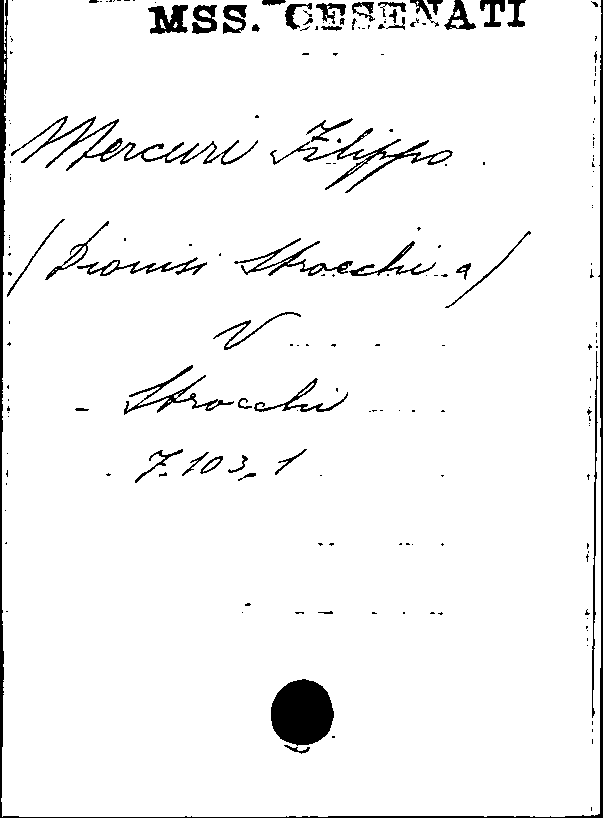 MSS. CESENATI
Mercuri Filippo
(Dionisi Strocchi a)
V
Strocchi
7.103,1